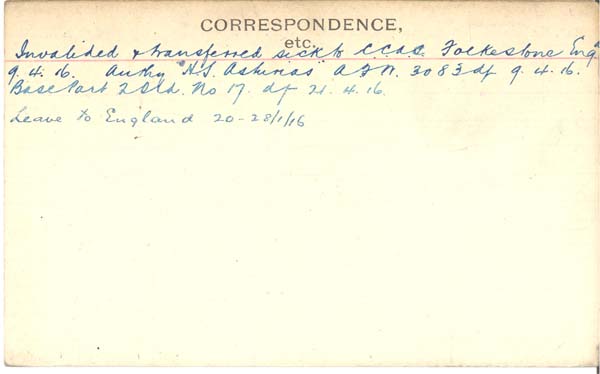 CORRESPONDENCE,
etc.
Invalided & transferred sick to C.C.A.C. Folkestone Eng.
9.4.16. Authy "H.S. Asturias" A.F.W. 3083 df 9.4.16.
Base Part 2 Old. No 17. df 21.4.16.
Leave to England 20-28/1/16